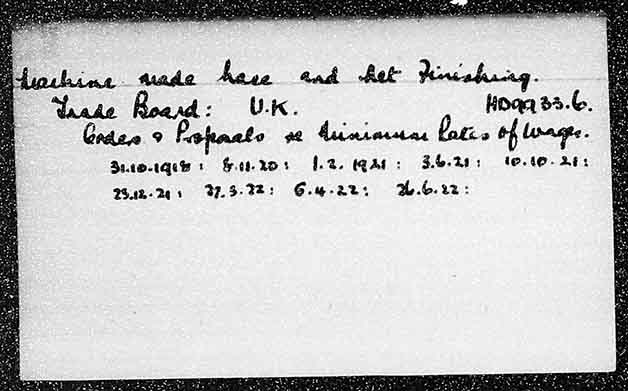 Machine made Lace and Net Finishing.
Trade Board: U.K. HD9933.6.
Orders & Proposals re Minimum Rates of Wages.
31.10.1918: 8.11.20: 1.2.1921: 3.6.21: 10.10.21:
23.12.21: 27.3.22: 6.4.22: 26.6.22: